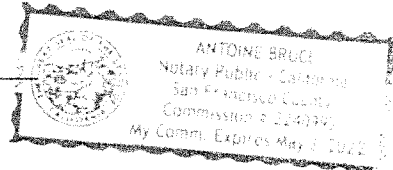 ANTOINE BRUCE
Notary Public - California
San Francisco County
Commission #
My Comm. Expires May 2022